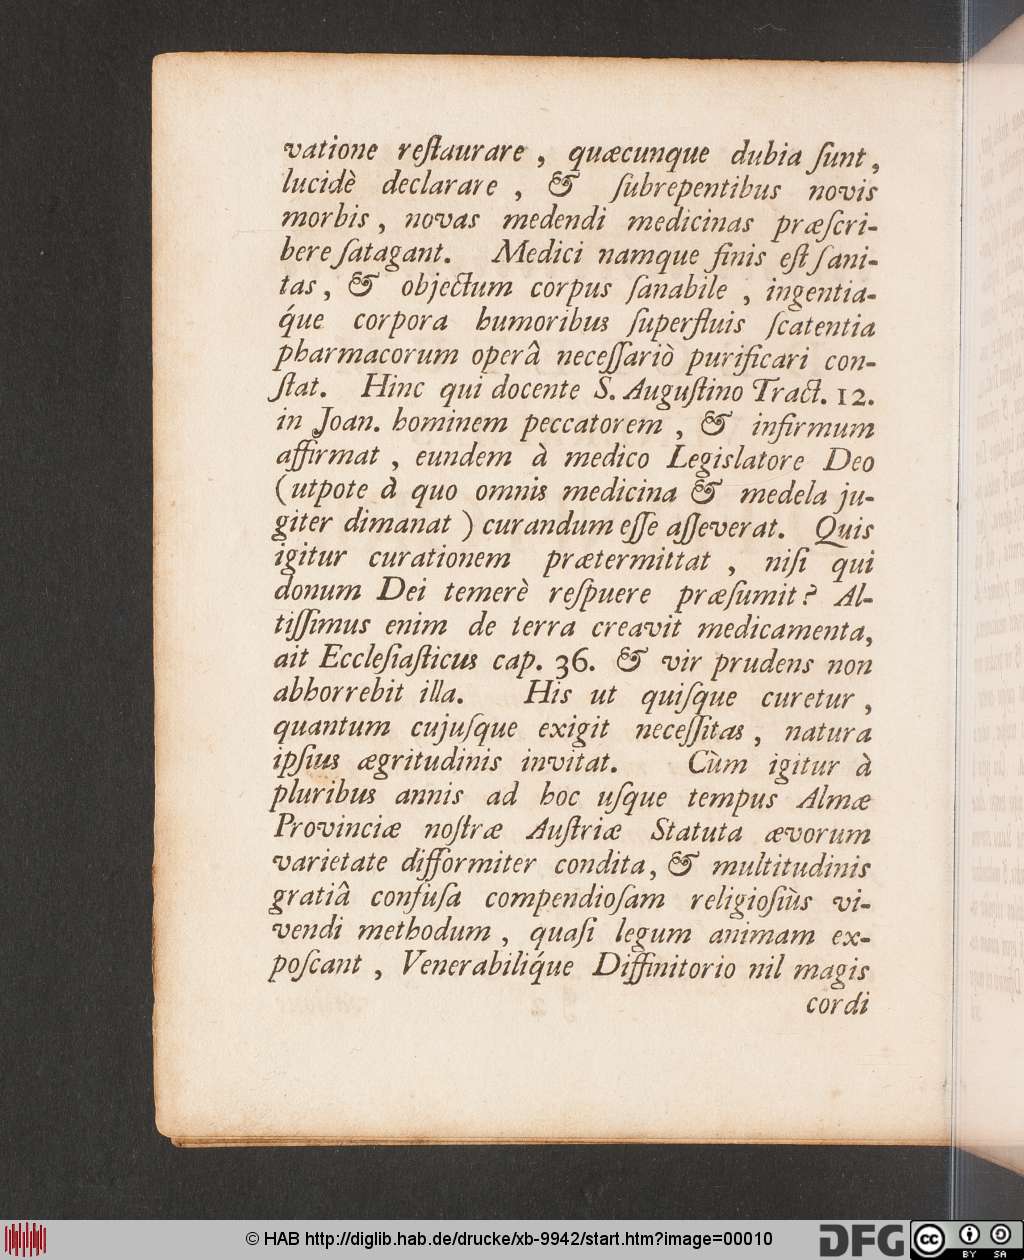 vatione reſtaurare, quæcunque dubia ſunt,
lucidè declarare, & ſubrepentibus novis
morbis, novas medendi medicinas præſcri-
bere ſatagant. Medici namque finis eſt ſani-
tas, & objectum corpus ſanabile, ingentia-
q́ue corpora humoribus ſuperfluis ſcatentia
pharmacorum operâ neceſſariò purificari con-
ſtat. Hinc qui docente S. Auguſtino Tract. 12.
in Joan. hominem peccatorem, & infirmum
affirmat, eundem à medico Legislatore Deo
(utpote à quo omnis medicina & medela ju-
giter dimanat) curandum eſſe aſſeverat. Quis
igitur curationem prætermittat, niſi qui
donum Dei temerè reſpuere præſumit? Al-
tiſſimus enim de terra creavit medicamenta,
ait Eccleſiaſticus cap. 36. & vir prudens non
abhorrebit illa. His ut quiſque curetur,
quantum cujuſque exigit neceſſitas, natura
ipſius ægritudinis invitat. Cùm igitur à
pluribus annis ad hoc uſque tempus Almæ
Provinciæ noſtræ Auſtriæ Statuta ævorum
varietate difformiter condita, & multitudinis
gratiâ confuſa compendioſam religioſiùs vi-
vendi methodum, quaſi legum animam ex-
poſcant, Venerabiliq́ue Diffinitorio nil magis
cordi
© HAB http://diglib.hab.de/drucke/xb-9942/start.htm?image=00010
DFG
cc BY SA